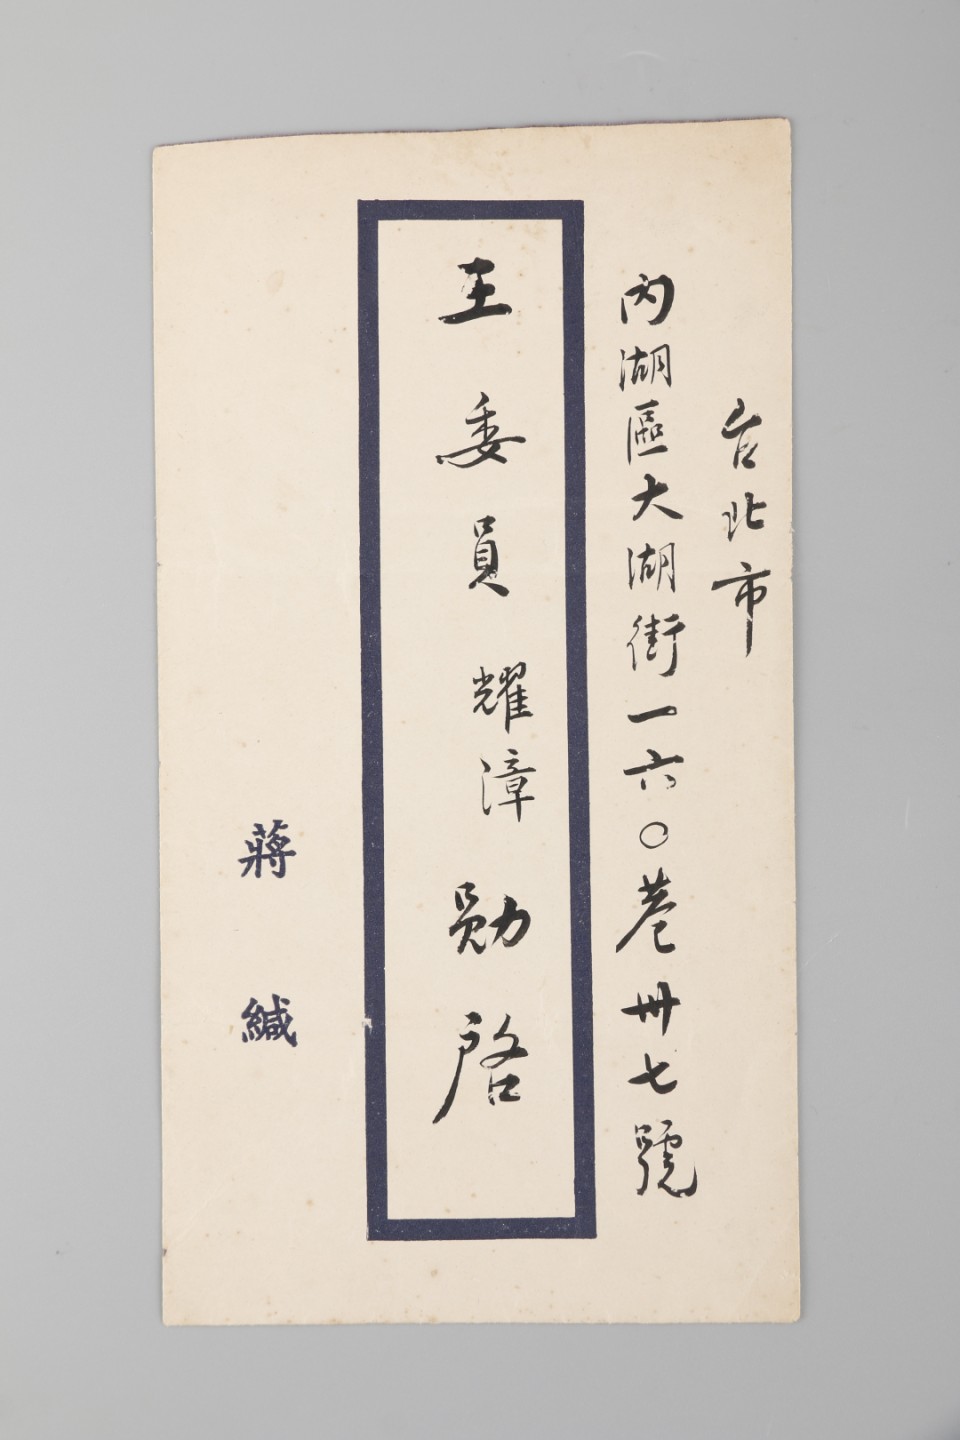 台北市
內湖區大湖街一六〇巷卅七號
王委員耀漳勛啓
蔣緘